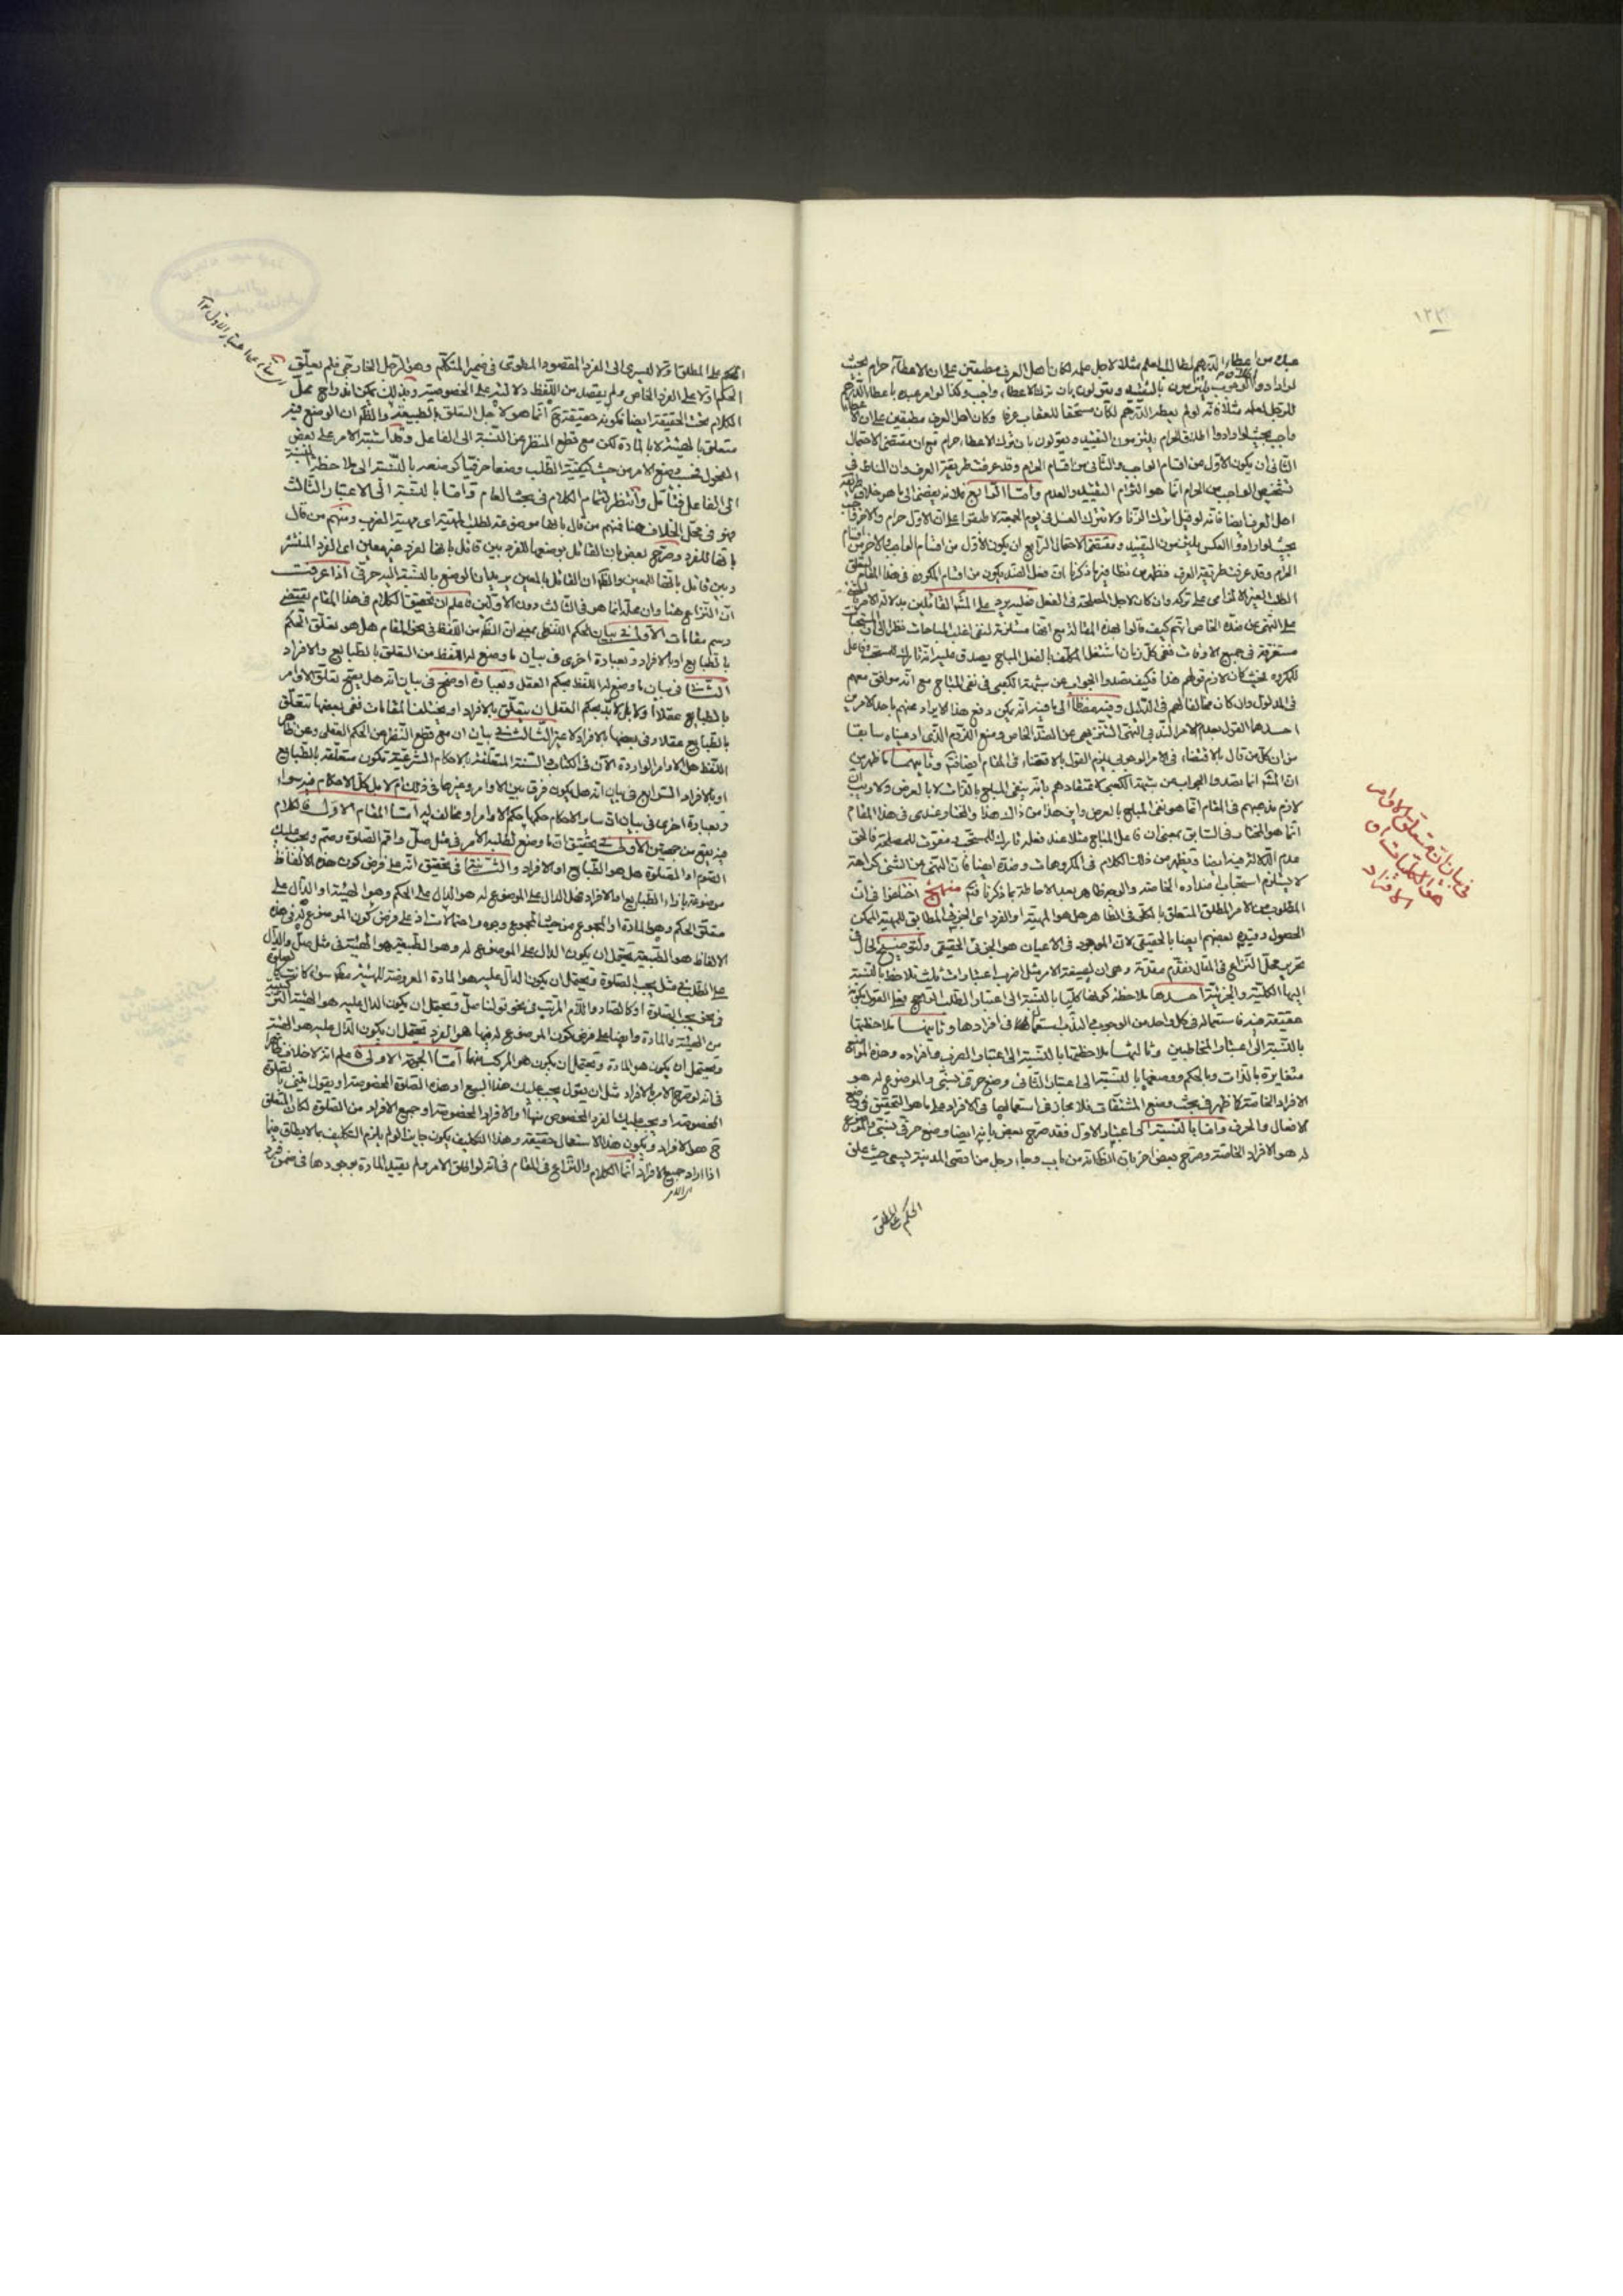 ١٢٣
لو اراد والوجوب يلتزمون بالتقييد ويقولون بان ترك الاعطاء واجب وكذا لو امر عبده باعطاء الدرهم
للرجل لعلمه مثلا فانه لو لم يعط الدرهم لكان مستحقا للعقاب عرفا وكان اهل العرف مطبقين على ان الاعطاء
واجب بحيث لو ارادوا اطلاق الحرام يلتزمون التقييد ويقولون بان ترك الاعطاء حرام مع ان مقتضى الاحتمال
الثاني ان يكون الاول من اقسام الواجب والثاني من اقسام الحرام وقد عرفت طريقة العرف وان المناط في
تشخيص الواجب من الحرام انما هو التزام التقييد والعدم واما الرابع فلانه يفضي الى ما هو خلاف طريقة
اهل العرف ايضا فانه لو قيل اترك الزنا ولا تترك الغسل في يوم الجمعة لاطبقوا على ان الاول حرام والاخر واجب
بحيث لو ارادوا العكس يلتزمون التقييد ومقتضى الاحتمال الرابع ان يكون الاول من اقسام الواجب والاخر من اقسام
الحرام وقد عرفت طريقة العرف فظهر من مطاوي ما ذكرنا ان فعل الضد يكون من اقسام المكروه في هذا المقام
على النهي عن ضده الخاص انهم كيف قالوا بهذه المقالة مع انها مستلزمة لنفي اغلب المباحات نظرا الى ان المستحبات
مستغرقة في جميع الاوقات ففي كل زمان اشتغل المكلف بالفعل المباح يصدق عليه انه تارك للمستحب وفاعل
للمكروه بحيث كان لازم قولهم هذا فكيف تصدوا الجواب عن شبهة الكعبي في نفي المباح مع انه موافق معهم
في المدلول وان كان مخالفا لهم في الدليل
احدهما القول بعدم الامر الندبي النهي التنزيهي عن الضد الخاص ومنع اللزوم الذي ادعيناه سابقا
من ان كل من قال بالاقتضاء في الامر الوجوبي يلزم القول بالاقتضاء في المقام ايضا فتم وثانيهما ما ظهر من
ان المشهور انما تصدوا الجواب عن شبهة الكعبي لاعتقادهم بانه ينفي المباح بالذات لا بالعرض ولا ريب ان
لازم مذهبهم في المقام انما هو نفي المباح بالعرض واين هذا من ذاك هذا والمختار عندي في هذا المقام
انما هو المختار في السابق بمعنى ان فاعل المباح مثلا عند فعله تارك للمستحب ومفوت للمصلحة فالحق
عدم الدلالة فيه ايضا ويظهر من ذلك الكلام في المكروهات وضده ايضا فان النهي عن الشيء كراهة
لا يستلزم استحباب اضداده الخاصة والوجه ظاهر بعد الاحاطة بما ذكرنا فتم منهج اختلفوا في ان
المطلوب من الامر المطلق المتعلق بالكلي في الظاهر هل هو المهية او الفرد اي الجزئي المطابق للمهية الممكن
الحصول وقيده بعضهم ايضا بالحقيقي لان الموجود في الاعيان هو الجزئي الحقيقي ولتوضيح الحال في
تحرير محل النزاع في المقال نقدم مقدمة وهي ان لصيغة الامر مثل اضرب اعتبارات ثلث تلاحظ بالنسبة
اليها الكلية والجزئية احدها
بالنسبة الى اعتبار المخاطبين وثالثها ملاحظتها بالنسبة الى اعتبار الضرب وافراده وهذه المواضع
متغايرة بالذات وبالحكم ووضعها بالنسبة الى اعتبار الثاني وضع حرفي نسبي والموضوع له هو
الافراد الخاصة كما ظهر في بحث وضع المشتقات فلا مجاز في استعمالها في الافراد على ما هو التحقيق في وضع
الافعال والحروف واما بالنسبة الى اعتبار الاول فقد صرح بعض بانه ايضا وضع حرفي نسبي والموضوع
له هو الافراد الخاصة وصرح بعض اخر بان الظاهر انه من باب وجاء رجل من اقصى المدينة يسعى حيث علق
الحكم على المطلق
في بيان ان متعلق الاوامر
هو الكليات او
الافراد
الحكم على المطلق اولا ليسري الى الفرد المقصود المطوي في ضمير المتكلم وهو الرجل الخارجي فلم يعلق
الحكم اولا على الفرد الخاص ولم يقصد من اللفظ دلالته على الخصوصية وبذلك يمكن اندراج محل
الكلام تحت الحقيقة ايضا فكونه حقيقة ح انما هو لاجل التعلق بالطبيعة والظاهر ان الوضع فيه
متعلق بالهيئة لا بالمادة لكن مع قطع النظر عن النسبة الى الفاعل وقد اشتبه الامر على بعض
الفحول
الى الفاعل فتأمل وانتظر لتمام الكلام في بحث العام واما بالنسبة الى الاعتبار الثالث
فهو محل الخلاف هنا فمنهم من قال بانها موضوعة لطلب المهية اي مهية الضرب ومنهم من قال
بانها للفرد وصرح بعض بان القائل بوضعها للفرد بين قائل بانها لفرد غير معين اي الفرد المنتشر
وبين قائل بانها للمعين والظاهر ان القائل بالمعين يريد ان الوضع بالنسبة اليه حرفي اذا عرفت
ان النزاع هنا وان محله انما هو في الثالث دون الاولين فاعلم ان تحقيق الكلام في هذا المقام يقتضي
رسم مقامات الاول في بيان الحكم اللفظي بمعنى ان الظاهر من اللفظ في محل المقام هل هو تعلق الحكم
بالطبايع او بالافراد وبعبارة اخرى في بيان ما وضع له اللفظ من التعلق بالطبايع والافراد
الثاني في بيان ما وضع له اللفظ بحكم العقل وبعبارة اوضح في بيان انه هل يصح تعلق الاوامر
بالطبايع عقلا او لا بل لا بد بحكم العقل ان يتعلق بالافراد او يختلف المقامات ففي بعضها تتعلق
بالطبايع عقلا وفي بعضها بالافراد لا غير الثالث في بيان ان مع قطع النظر عن الحكم العقلي وعن ظاهر
اللفظ هل الاوامر الواردة الان في الكتاب والسنة المتعلقة بالاحكام الشرعية تكون متعلقة بالطبايع
او بالافراد الرابع في بيان انه هل يكون فرق بين الاوامر وغيرها في ذلك ام لا بل كل الاحكام فيه سواء
وبعبارة اخرى في بيان ان ساير الاحكام حكمها حكم الاوامر او مخالف له اما المقام الاول فالكلام
فيه يقع من جهتين الاولى في تحقيق ان ما وضع لطلبه الامر في مثل صل واقم الصلوة وصم ويجب عليك
الصوم او الصلوة هل هو الطبايع او الافراد والثانية في تحقيق انه على فرض كون هذه الالفاظ
موضوعة بازاء الطبايع او الافراد فهل الدال على الموضوع له هو الدال على الحكم وهو الهيئة او الدال على
متعلق الحكم وهو المادة او المجموع من حيث المجموع وجوه واحتمالات اذ على فرض كون الموضوع له في هذه
الالفاظ هو الطبيعة يحتمل ان يكون الدال على الموضوع له وهو الطبيعة هو الهيئة في مثل صل والدال
على الطلب في مثل يجب الصلوة ويحتمل ان يكون الدال عليه هو المادة المعروضة للهيئة
في نحو يجب الصلوة او كالصاد واللام المرتب في نحو قولنا صل ويحتمل ان يكون الدال عليه هو الهيئة المركبة
من الهيئة والمادة وايضا على فرض كون الموضوع له فيها هو الفرد يحتمل ان يكون الدال عليه هو الهيئة
ويحتمل ان يكون هو المادة ويحتمل ان يكون هو المركب منهما اما الجهة الاولى فاعلم انه لا خلاف ظاهرا
في انه لو صرح الامر بالافراد مثل ان يقول يجب عليك هذا البيع او هذه الصلوة المخصوصة او يقول
المخصوصة او يجب عليك الفرد المخصوص منها او الافراد المخصوصة او جميع الافراد من الصلوة لكان المتعلق
ح هو الافراد ويكون هذا الاستعمال حقيقة وهذا التكليف يكون جايزا لو لم يلزم التكليف بما لا يطاق فيما
اذا اراد جميع الافراد انما الكلام والنزاع في المقام في انه لو اطلق الامر ولم يقيد المادة بوجودها في ضمن فرد